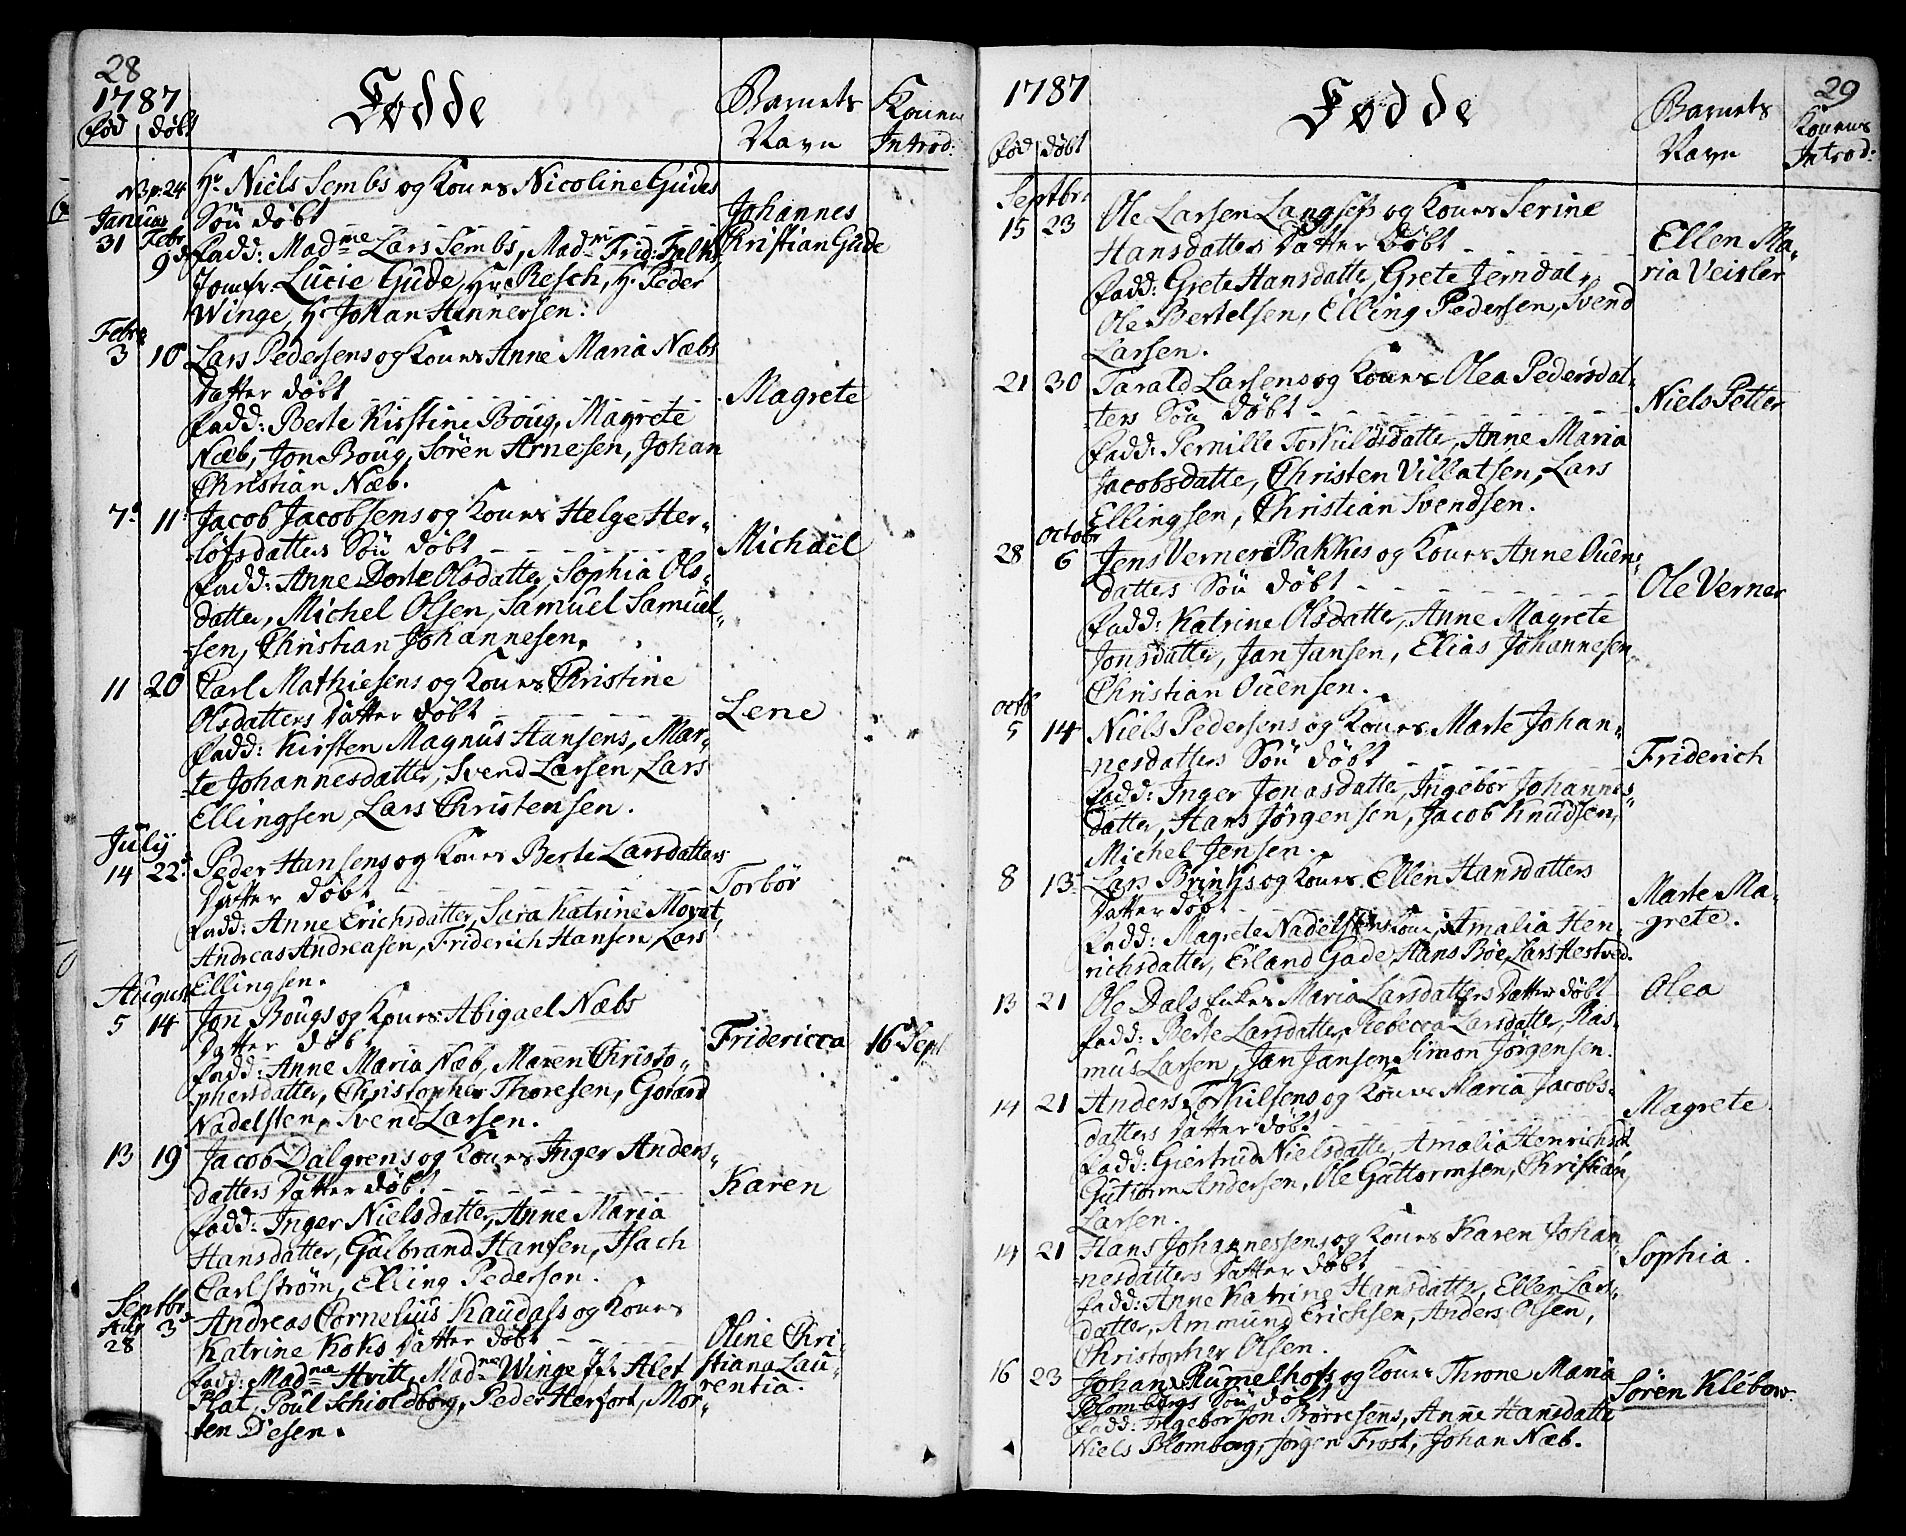 28
1787
Fød døbt
Fødde
Barnets
Navn
Konens
Introd:
No p. 24
Januar
31 Febr 9d
Hr Niels Sembs og Kones Nicoline Gudes
Søn døbt
Johannes
Kristian Gude
Fadd: Madme Lars Sembs, Madme Frid:
Jomfr. Lucie Gude, Hr Resch, Hr Peder
Winge, Hr Johan Hennersen:
Febr:
3 10 Lars Pedersens og Kones Anne Maria Næbs
Datter døbt
Magrete
Fadd: Berte Kirstine Boug, Magrete
Næb, Jon Boug, Sören Arnesen, Johan
Christian Næb.
7d 11 Jacob Jacobsens og Kones Helge Her-
-lofsdatters Søn døbt
Michäel
Fadd: Anne Dorte Olsdatter, Sophia Ols-
datter, Michel Olsen, Samuel Samuel-
sen, Christian Johannesen.
11 20 Carl Mathiesens og Kones Christine
Olsdatters Datter døbt
Lene
Fadd: Kirsten Magnus Hansens, Mar-
te Johannesdatter, Svend Larsen, Lars
Ellingsen, Lars Christensen.
July
14 22 Peder Hansens og Kones Berte Larsdatters
Datter døbt
Torbör
Fadd: Anne Erichsdatter, Sara Katrine Morat,
Andreas Andreasen, Friderich Hansen, Lars
Ellingsen.
August
5 14 Jon Bougs og Kones Abigael Næbs
Datter døbt
Fridericca
16 Sept
Fadd: Anne Maria Næb, Maren Christo-
phersdatter, Christopher Thoresen, Gorard
Nadelsten, Svend Larsen.
13 19 Jacob Dalgrens og Kones Inger Anders-
datters Datter døbt
Karen
Fadd: Inger Nielsdatter, Anne Maria
Hansdatter, Gulbrand Hansen, Isach
Carlström, Elling Pedersen.
Septbr
Aug 28 3d
Andreas Cornelius Kaudals og Kones
Katrine Koks Datter døbt
Oline Chri-
stiana Lau-
rentia.
Fadd: Madme Hvitt, Madme Winge, Jfr Alet
Rat, Poul Schioldborg, Peder Herfort, Mor-
ten Diesen.
1787
29
Fød døbt
Fødde
Barnets
Navn
Konens
Introd:
Septbr:
15 23 Ole Larsen Langses og Kones Serine
Hansdatters Datter døbt
Ellen Ma-
ria Veisler
Fadd: Grete Hansdatter, Grete Jerndal,
Ole Bertelsen, Elling Pedersen, Svend
Larsen.
21 30 Tarald Larsens og Kones Olea Pedersdat-
ters Søn døbt
Niels Petter
Fadd: Pernille Torkildsdatter, Anne Maria
Jacobsdatter, Christen Villatsen, Lars
Ellingsen, Christian Svendsen.
Octobr
28 6 Jens Verner Bakkes og Kones Anne Ouens-
datters Søn døbt
Ole Verner
Fadd: Katrine Olsdatter, Anne Magrete
Jonsdatter, Jan Jansen, Elias Johannesen,
Christian Ouensen.
Octb
5 14 Niels Pedersens og Kones Marte Johan-
nesdatters Søn døbt
Friderich
Fadd: Inger Jonasdatter, Ingebor Johannes-
datter, Hans Jörgensen, Jacob Knudsen,
Michel Jensen.
8 13 Lars Brinks og Kones Ellen Hansdatters
Datter døbt
Marte Ma-
grete.
Fadd: Magrete Nadelsten, Amalia Hen-
richsdatter, Erland Gade, Hans Böe, Lars Hestved.
13 21 Ole Dals Enkes Maria Larsdatters Datter døbt
Olea
Fadd: Berte Larsdatter, Rebecca Larsdatter, Ras-
mus Larsen, Jan Jansen, Simon Jörgensen.
14 21 Anders Torkilsens og Kones Maria Jacobs-
datters Datter døbt
Magrete.
Fadd: Giertrud Nielsdatter, Amalia Henrichsd.
Guttorm Andersen, Ole Guttormsen, Christian
Larsen.
14 21 Hans Johannessens og Kones Karen Johan-
nesdatters Datter døbt
Sophia.
Fadd: Anne Katrine Hansdatter, Ellen Lars-
datter, Ammund Erichsen, Anders Olsen,
Christopher Olsen.
16 23 Johan Rumelhofs og Kones Throne Maria
Blombergs Søn døbt
Sören Klebow.
Fadd: Ingebor Jon Börresens, Anne Hansdatter
Niels Blomberg, Jørgen Frost, Johan Næb.